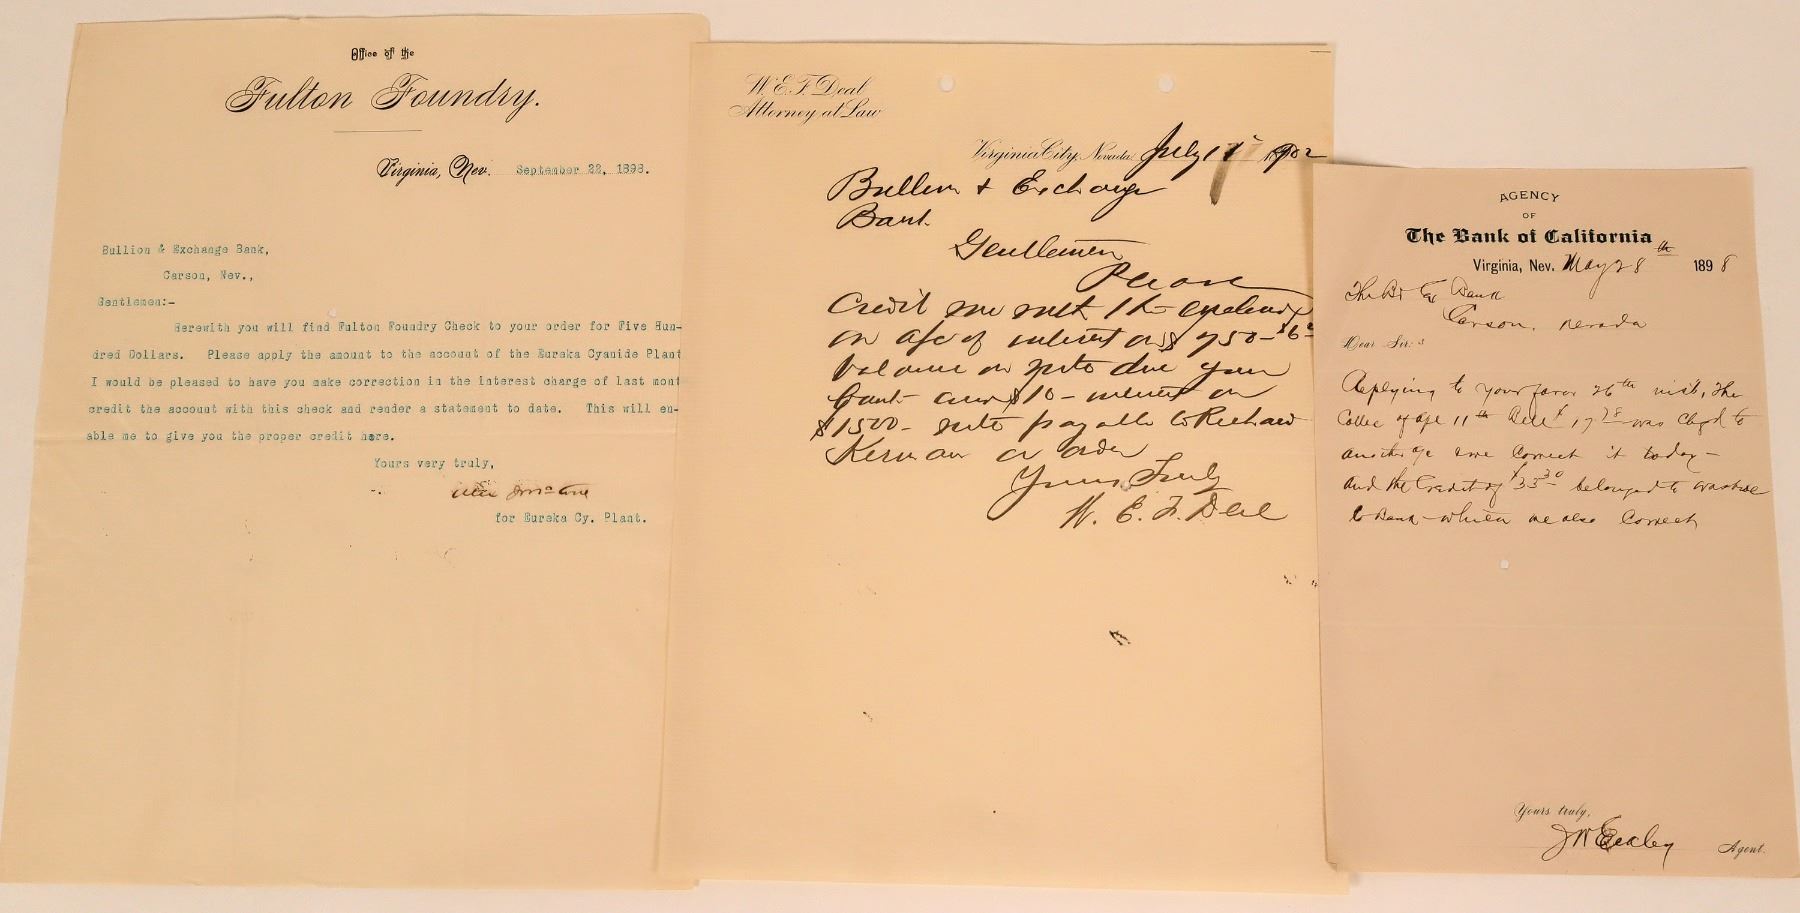 Office of the
Fulton Foundry.
Virginia, Nev. September 22, 1898.
Bullion & Exchange Bank,
Carson, Nev.,
Gentlemen:-
Herewith you will find Fulton Foundry Check to your order for Five Hun-
dred Dollars. Please apply the amount to the account of the Eureka Cyanide Plant
I would be pleased to have you make correction in the interest charge of last mont
credit the account with this check and render a statement to date. This will en-
able me to give you the proper credit here.
Yours very truly,
for Eureka Cy. Plant.
W. E. F. Deal
Attorney at Law
Virginia City, Nevada, July 1902
Bullion & Exchange
Bank
Gentlemen
Please
Credit me
on a/c of interest on $750-
balance on note due your
bank and $10- interest on
$1500- note payable to Richard
Kirman or order
Yours Truly
W. E. F. Deal
AGENCY
OF
The Bank of California
Virginia, Nev. May 28th 1898
The B & Ex Bank
Carson, Nevada
Dear Sir:s
Replying to your favor 26th inst, the
Collec of 11th 17 was Chgd to
another we correct it today-
and the Credit of $33 30 belonged to
Bank- which we also correct
Yours truly,
Agent.